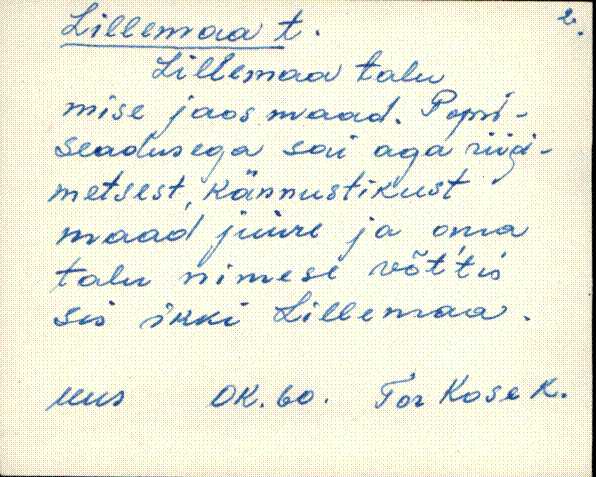 Lillemaa t. 2.
Lillemaa talu
mise jaos maad. Popsi-
seadusega sai aga riigi-
metsest, kännustikust
maad juure ja oma
talu nimese võt't'is
sis ikki Lillemaa.
Uus OK. 60. Tor Kose k.